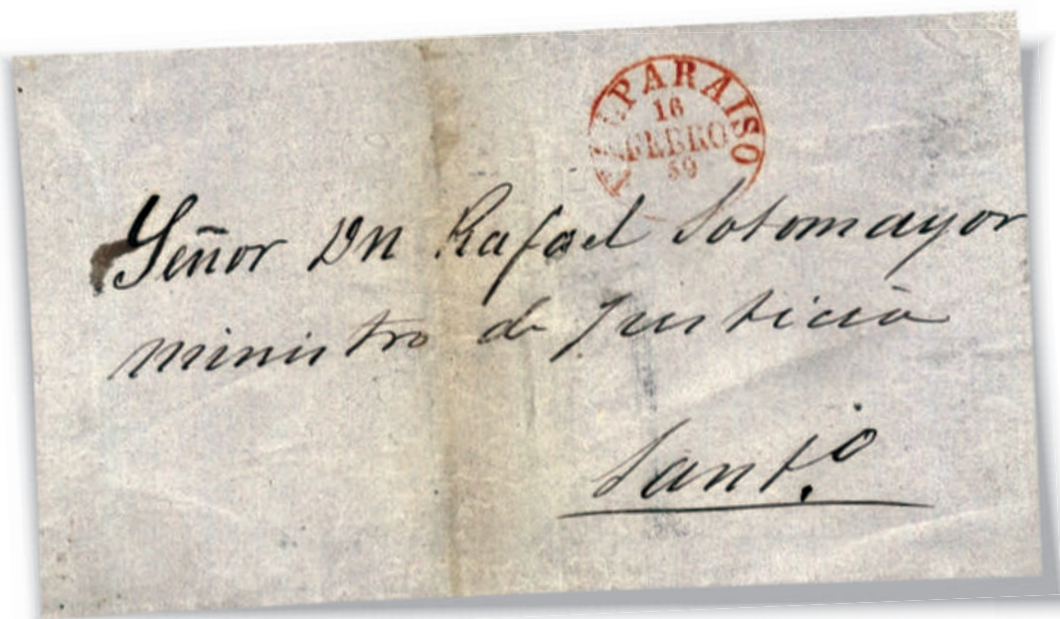 VALPARAISO
16
FEBRO
59
Señor Dn Rafael Sotomayor
ministro de Justicia
Sant.o